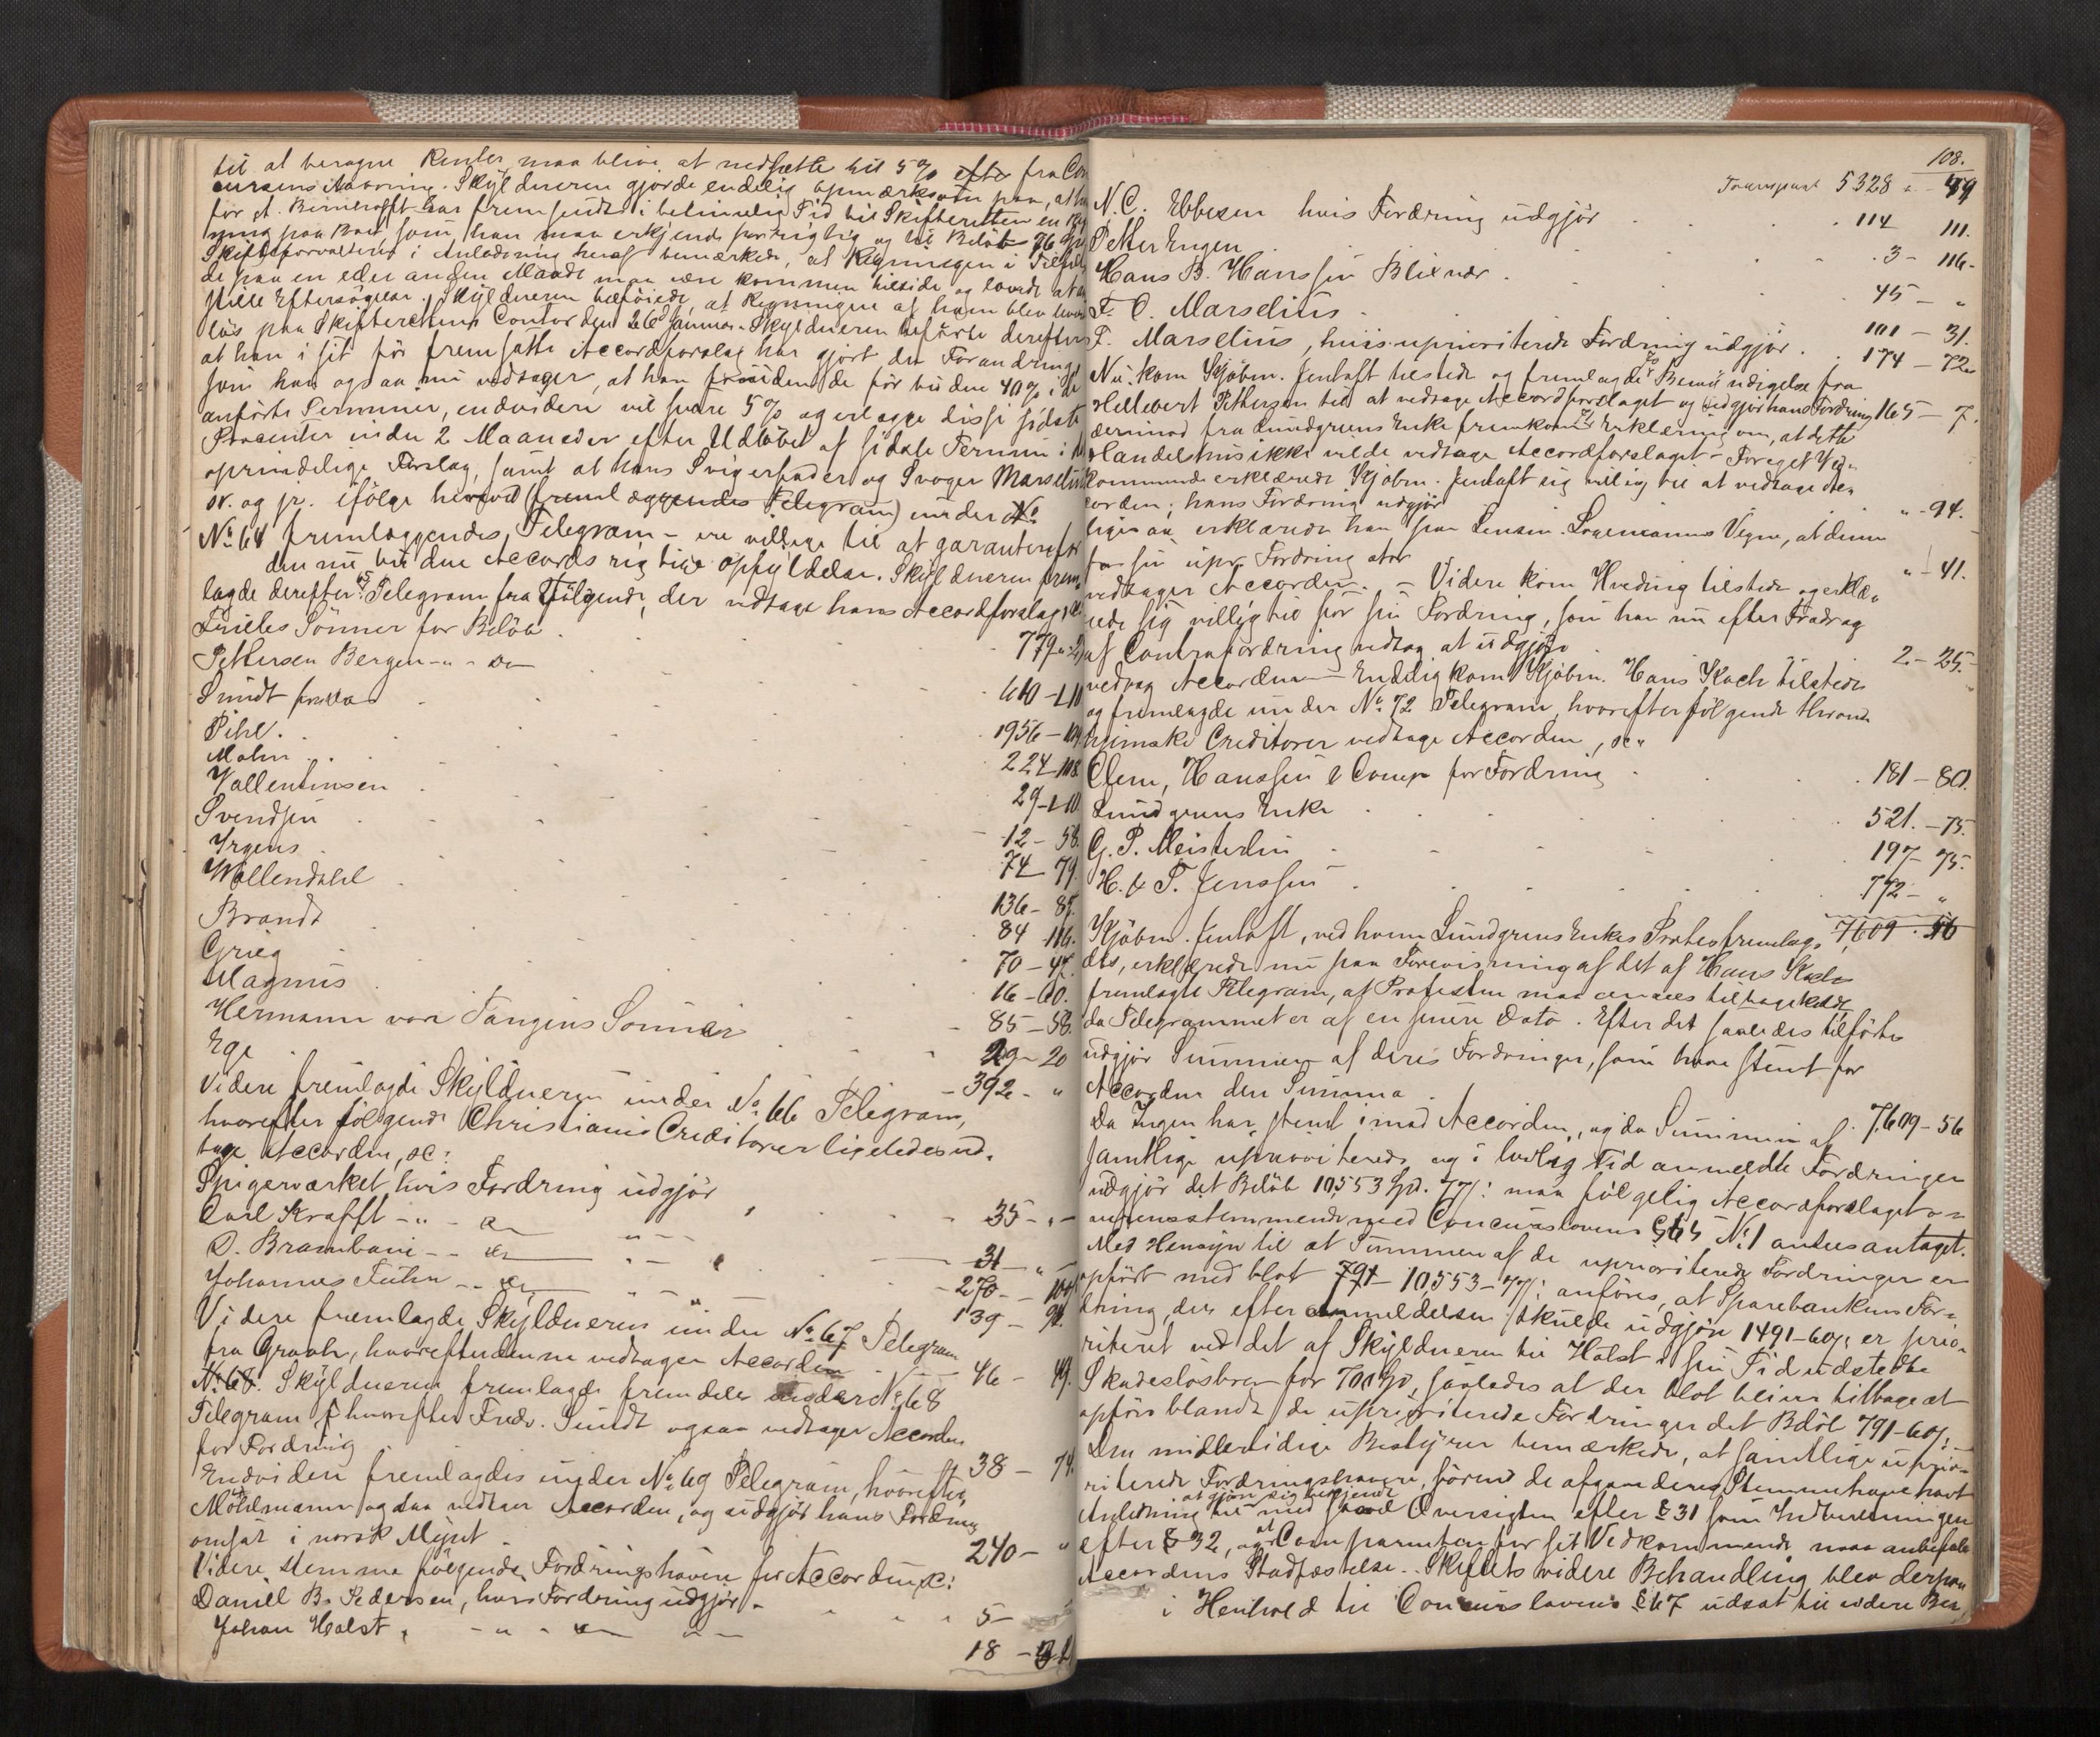 til at beregne Renter maa blive at nedsætte til 5% efter fra Con
cursens Aabning. Skyldneren gjorde endelig opmærksom paa, at
for A. har fremsendt i betimelig Tid til Skifteretten en Reg
ning paa Boet som han maa erkjende for rigtig og til Beløb 76 Spd
Skifteforvalteren i Anledning heraf bemærkede, at Regningen i Tilfælde
de paa en eller anden Maade maa være kommen tilside og lovede at an
stille Eftersøgelse. Skyldneren tilføiede, at Regningen af ham blev leve
paa Skifterettens Contor den 26de Januar. Skyldneren tilførte derefter
at han i sit før fremsatte Accordforslag har gjort den Forandring,
som han ogsaa nu vedtager, at han foruden de før budne 40% i de
anførte Terminer, endvidere vil svare 5% og erlægge disse sidste
Procenter inden 2 Maaneder efter Udløbet af sidste Termin i det
oprindelige Forslag, samt at hans Svigerfader og Svoger Marselius
sr. og jr. ifølge herved (fremlæggendes Telegram) under No
No 64 fremlæggendes Telegram - ere villige til at garantere for
den nu budne Accords rigtige Opfyldelse. Skyldneren frem-
lagde derefter 65 Telegram fra Følgende, der vedtage hans Accordforslag, sc:
Frieles Sønner for Beløb . 779 - 2
Pettersen Bergen - " - 610 - 110
Sundt . 1956 - 109
Pihl . 224 - 108
Mohn . . 29 - 110
Vallentinsen . 12 - 58.
Svendsen . 74 - 79.
Irgens . 136 - 87.
Wollendahl . 84 - 116.
Brandt . 70 - 47.
Grieg . 16 - 60.
Magnus . 85 - 58.
Hermann von Tangens Sønner . 29 - 20
Ege . - 392 - "
Videre fremlagde Skyldneren under No 66 Telegram,
hvorefter følgende Christiania Creditorer ligeledes ved-
tage Accorden, sc:
Spigerværket hvis Fordring udgjør . 35 - " -
Carl Krafft - " - 31 - " -
D. - - 270 - 104
Johannes - - 139 - 91.
Videre fremlagde Skyldneren under No 67 Telegram
fra Graah, hvorefter denne vedtager Accorden - 46 - 49.
No 68. Skyldneren fremlagde fremdeles under No 68
Telegram hvorefter Fredr. Sundt ogsaa vedtager Accorden
for Fordring . 38 - 74.
Endvidere fremlagdes under No 69 Telegram, hvorefter
Møhlmann ogsaa vedtager Accorden, og udgjør hans Fordring
omsat i norsk Mynt . 240 - "
Videre stemme følgende Fordringshavere for Accorden, sc:
Daniel B. Pedersen, hvis Fordring udgjør - 5 -
Johan Holst, - " - 18 -
108.
Transport 5328 - 49
N. C. Ebbesen hvis Fordring udgjør . 114 111.
Petter Engen . 3 - 116 -
Hans B. Hanssen Blixvær . 45 - "
F. C. Marselius . 101 - 31.
F. Marselius, hvis uprioriterede Fordring udgjør . 174 - 72
Nu kom Kjøbm. Jentoft tilstede og fremlagde 70 Bemyndigelse fra
Hellebert Pettersen til at vedtage Accordforslaget og udgjør hans Fordring 165 - 7.
derimod fra Lundgrens Enke fremkom 71 Erklæring om, at dette
Handelshus ikke vilde vedtage Accordforslaget - Foreget Ved-
kommende erklærede Kjøbm. Jentoft sig villig til at vedtage Ac-
corden; hans Fordring udgjør " - 94.
ligesaa erklærede han paa Vegne, at denne
for sin upr. Fordring stor " - 41.
vedtager Accorden. - Videre kom Hveding tilstede og erklæ-
rede sig villig til for sin Fordring, som han nu efter Fradrag
af Contrafordring vedtog at udgjøre 2 - 25 -
vedtog Accorden - Endelig kom Kjøbm. Hans Koch tilstede
og fremlagde under No 72 Telegram, hvorefter følgende thrond-
hjemske Creditorer vedtage Accorden, sc:
Clem, Hanssen & Comp for Fordring . 181 - 80.
Lundgrens Enke . 521. - 75.
G. P. Meisterlin . 197 - 75.
H. & T. Jenssen . 772 - "
7609 . 56
Kjøbm. Jentoft, ved hvem Lundgrens Enkes Protest fremlag-
des, erklærede nu paa Forevisning af det af Hans Koch
fremlagte Telegram, at Protesten maa ansees tilbagekaldt,
da Telegrammet er af en senere Dato. Efter det saaledes tilførte
udgjør Summen af deres Fordringer, som have stemt for
Accorden den Summa . 7,609 - 56
Da Ingen har stemt imod Accorden, og da Summen af
samtlige uprioriterede og i lovlig Tid anmeldte Fordringer
udgjør det Beløb 10,553 Spd. 77 s: maa følgelig Accordforslaget o-
verensstemmende med Concurslovens § 65 No 1 ansees antaget.
Med Hensyn til at Summen af de uprioriterede Fordringer er
opført med blot 791 10,553 - 77 s: anføres, at Sparebankens For-
dring, der efter Anmeldelsen skulde udgjøre 1491 - 60 s. er prio-
riteret ved det af Skyldneren til Holst i sin Tid udstedte
Skadesløsbrev for 700 Spd, saaledes at der blot bliver tilbage at
opføre blandt de uprioriterede Fordringer det Beløb 791 - 60 s. -
Den midlertidige Bestyrer bemærkede, at samtlige uprio-
riterede Fordringshavere, førend de afgave deres Stemme have havt
Anledning til at gjøre sig bekjendt med saavel Oversigten efter § 31 som Indberetningen
efter § 32, og at Comparenten for sit Vedkommende maa anbefale
Accordens Stadfæstelse. Skiftets videre Behandling blev derpaa
i Henhold til Concurslovens § 67 udsat til videre Be